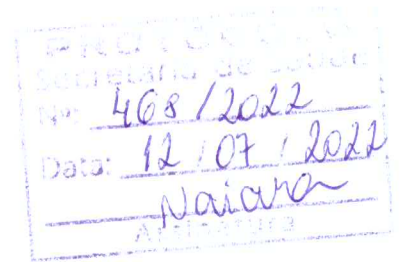 PROTOCOLO
Secretaria de Saúde
Nº: 468/2022
Data: 12/07/2022
Naiara
Assinatura